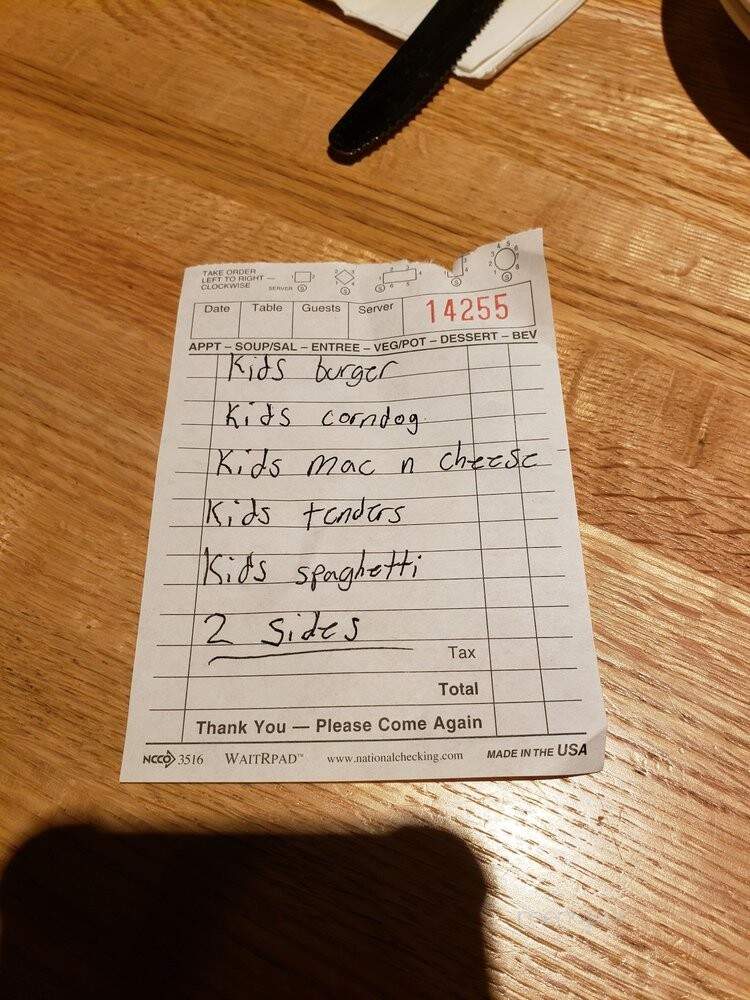 TAKE ORDER
LEFT TO RIGHT —
CLOCKWISE
SERVER
Date Table Guests Server 14255
APPT – SOUP/SAL – ENTREE – VEG/POT – DESSERT – BEV
Kids burger
Kids corndog
Kids mac n cheese
Kids tenders
Kids spaghetti
2 sides
Tax
Total
Thank You — Please Come Again
NCCO 3516 WAITRPAD™ www.nationalchecking.com MADE IN THE USA